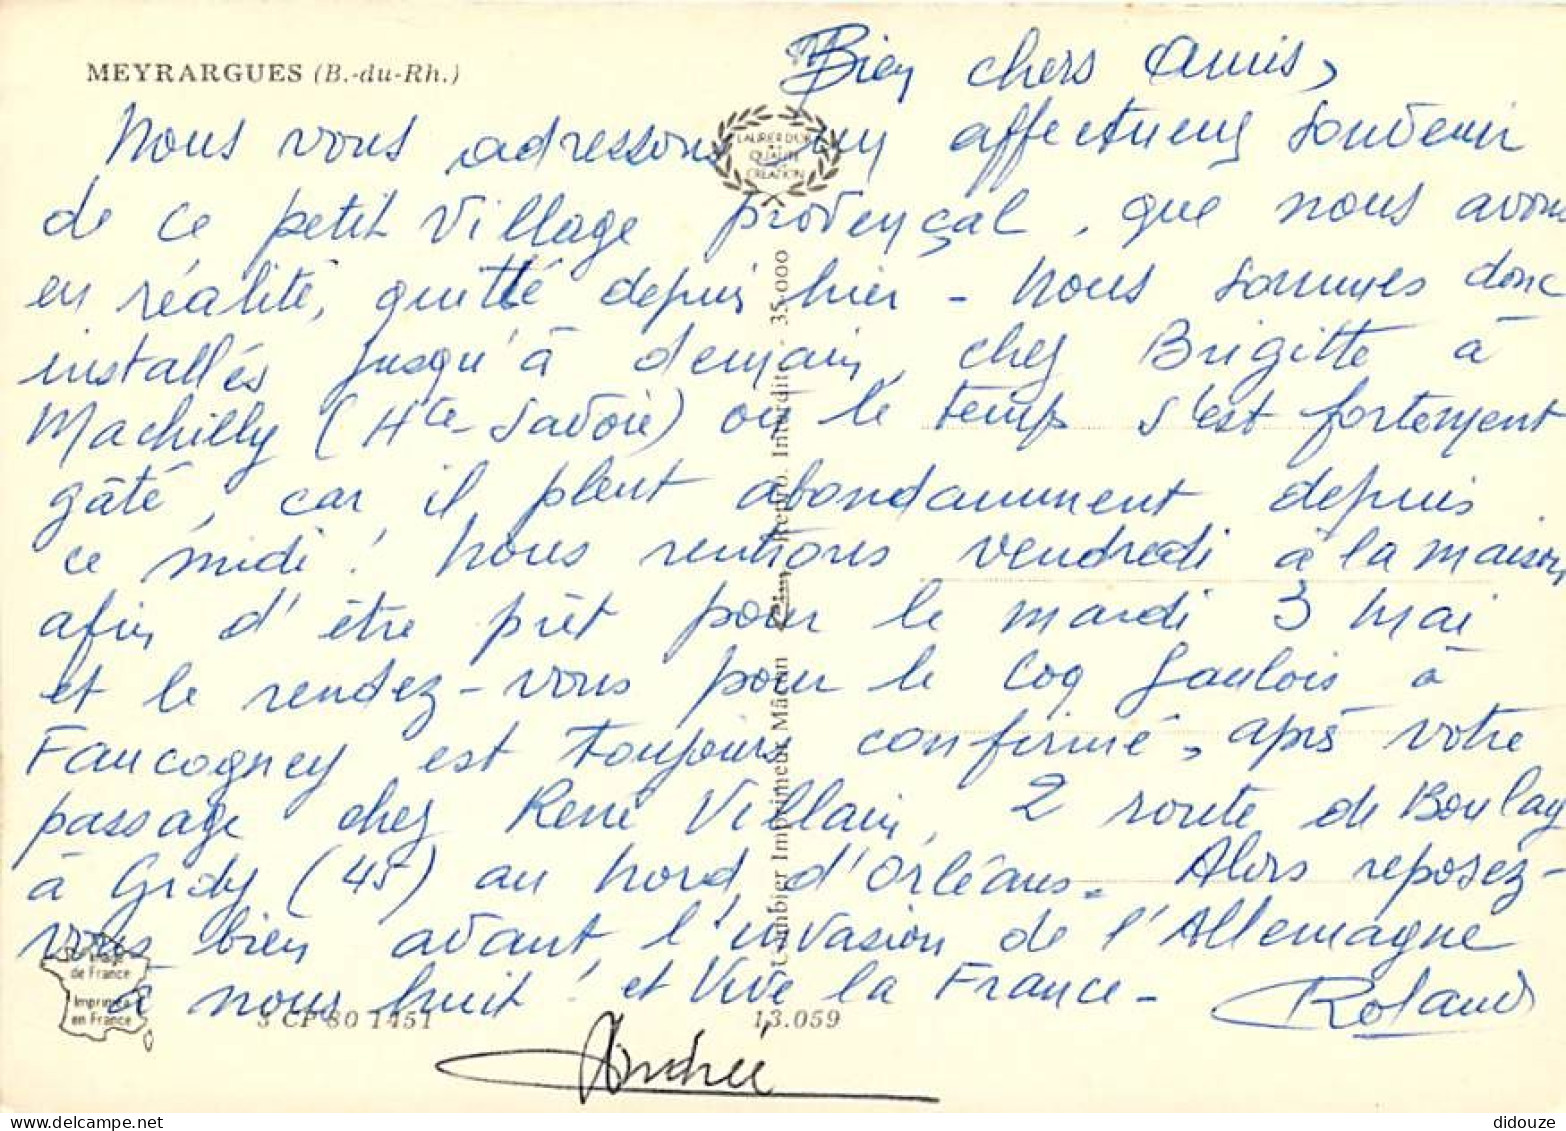 MEYRARGUES (B.-du-Rh.)
Bien chers Amis,
Nous vous adressons un affectueux souvenir
de ce petit village provençal, que nous avons
en réalité, quitté depuis hier - Nous sommes donc
installés jusqu'à demain, chez Brigitte à
Machilly (Hte-Savoie) où le temps s'est fortement
gâté, car il pleut abondamment depuis
ce midi! Nous rentrons vendredi à la maison
afin d'être prêt pour le mardi 3 Mai
et le rendez-vous pour le Coq Gaulois à
Faucogney est toujours confirmé, après votre
passage chez René Villain, 2 route de Boulay
à Gidy (45) au Nord, d'Orléans. Alors reposez-
vous bien avant, l'invasion de l'Allemagne
à nous huit! et Vive la France -
Roland
Andrée
LAURIER D'OR
QUALITÉ
CRÉATION
Combier Imprimeur Mâcon
Repro. Interdite - 35.000
de France
Imprimé
en France
3 CP 80 1451
13.059
didouze